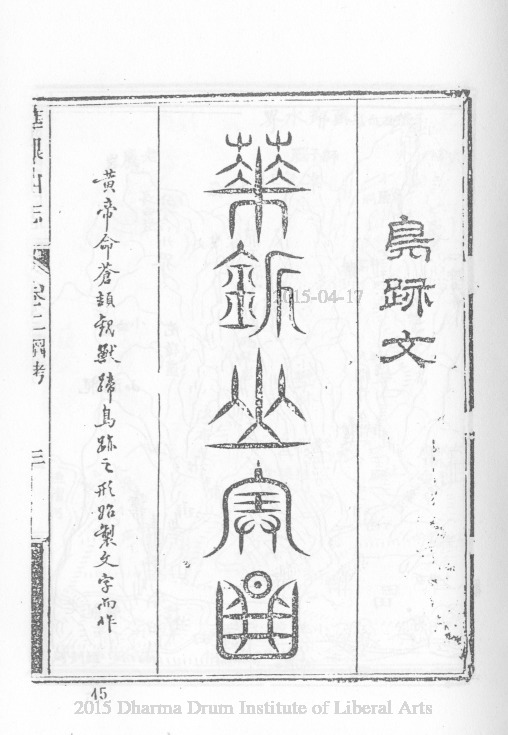 鳥跡文
華 山
黃帝命蒼頡觀獸蹄鳥跡之形始製文字而作
山志 卷二 考 三
15
2015-04-17
2015 Dharma Drum Institute of Liberal Arts